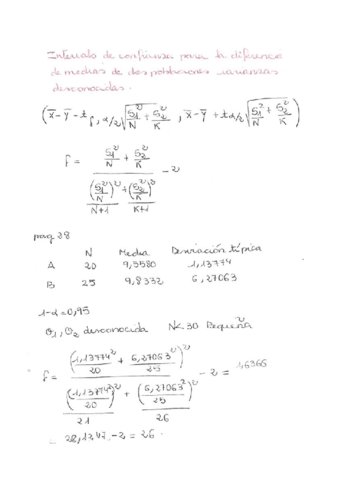 Intervalo de confianza para la diferencia
de medias de dos poblaciones varianzas
desconocidas.
(x̄ - ȳ - t f, α/2 √(S₁²/N + S₂²/K) , x̄ - ȳ + t α/2 √(S₁²/N + S₂²/K))
f = (S₁²/N + S₂²/K)² / ((S₁²/N)²/(N+1) + (S₂²/K)²/(K+1)) - 2
pag 28
N Media Desviación típica
A 20 9,5580 1,13774
B 25 9,8332 6,27063
1-α=0,95
σ₁, σ₂ desconocida N<30 Pequeña
f = (1,13774²/20 + 6,27063²/25)² / ((1,13774²/20)²/21 + (6,27063²/25)²/26) - 2 =
28,1247 - 2 = 26